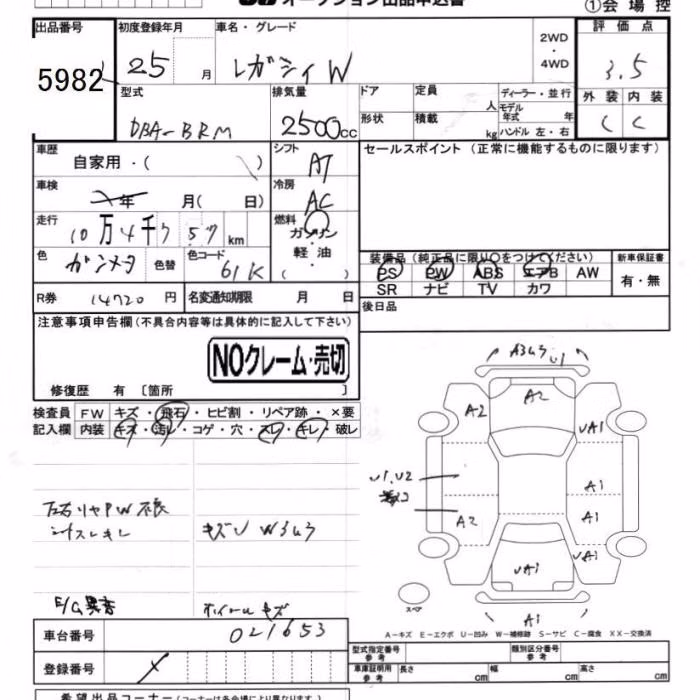 オークション出品申込書
①会場控
出品番号 初度登録年月 車名・グレード 2WD ・ 4WD 評価点
5982 25 月 レガシィ W 3.5
型式 排気量 ドア 定員 人 ディーラー・並行 外装 内装
DBA-BRM 2500cc 形状 積載 kg モデル年式 年 C C
ハンドル 左・右
車歴 自家用・( ) シフト AT セールスポイント（正常に機能するものに限ります）
車検 年 月( 日) 冷房 AC
走行 10万4千 57 km 燃料 ガソリン
色 ガンメタ 色替 色コード 61K 軽油 ( )
装備品（純正品に限り○をつけてください） 新車保証書
PS PW ABS エアB AW 有・無
SR ナビ TV カワ
R券 14720 円 名変通知期限 月 日 後日品
注意事項申告欄（不具合内容等は具体的に記入して下さい）
NOクレーム・売切
修復歴 有 〔箇所 〕
検査員 FW キズ・飛石・ヒビ割・リペア跡・×要
記入欄 内装 キズ・汚レ・コゲ・穴・スレ・キレ・破レ
A3U3 U1
A2 A2
UA1
U1.U2
A1
A2 A1
左右リヤPW不良
シートスレキレ キズU W3U3
UA1 UA1
E/G異音 ホイールキズ
スペア
A1
車台番号 021653
A－キズ E－エクボ U－凹み W－補修跡 S－サビ C－腐食 XX－交換済
登録番号
型式指定番号 参考 類別区分番号 参考
車庫証明用 参考 長さ cm 幅 cm 高さ cm
希望出品コーナー（コーナーは各会場により異なります。）